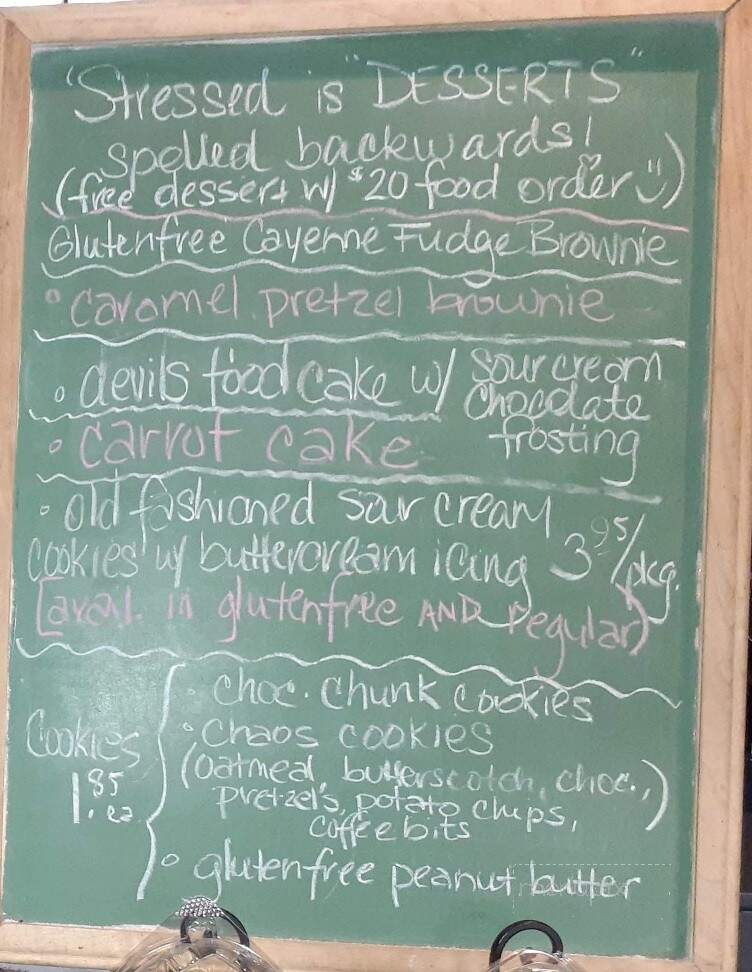 "Stressed is "DESSERTS"
spelled backwards!
(free dessert w/ $20 food order)
Glutenfree Cayenne Fudge Brownie
• caromel pretzel brownie
• devils food cake w/ sour cream
chocolate
frosting
• carrot cake
• old fashioned sour cream
cookies w/ buttercream icing 3 95/pkg.
[avai. in glutenfree AND regular)
Cookies
1.85 ea
• choc. chunk cookies
• chaos cookies
(oatmeal, butterscotch, choc.,
pretzel's, potato chips,
coffee bits)
• glutenfree peanut butter